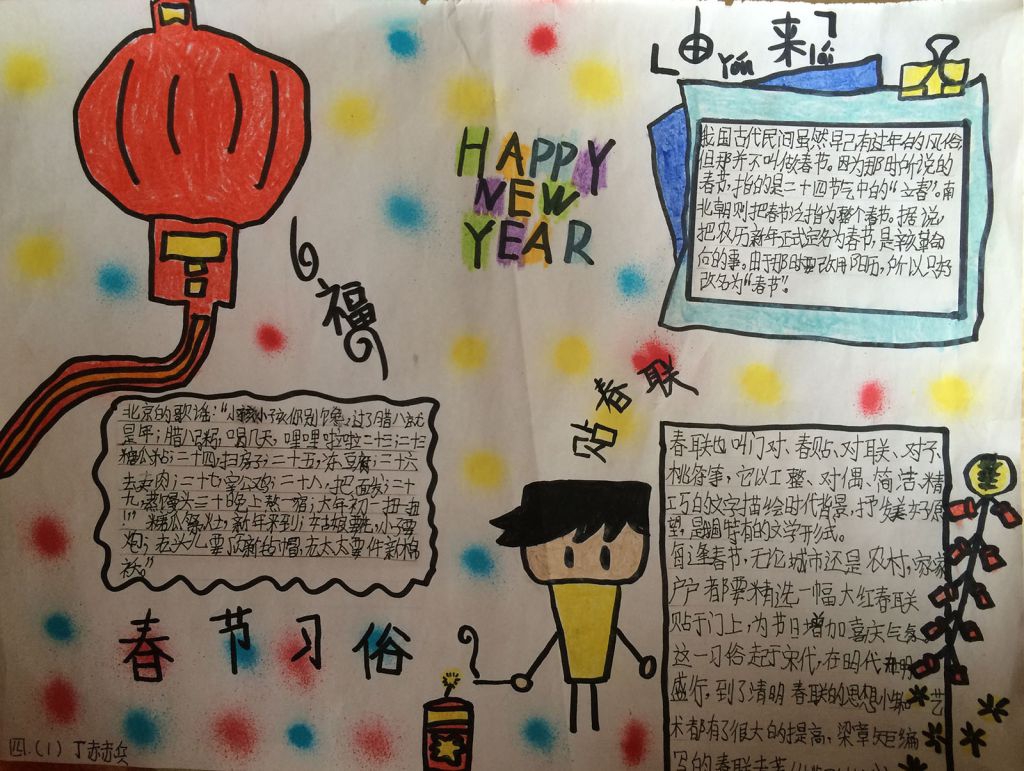 由 来
yóu lái
我国古代民间虽然早已有过年的风俗
但那并不叫做春节。因为那时所说的
春节,指的是二十四节气中的“立春”。南
北朝则把春节泛指为整个春节。据说,
把农历新年正式定名为春节,是辛亥革命
向的事,由于那时要改用阳历,所以只好
改名为“春节”。
HAPPY
NEW
YEAR
福
北京的歌谣:“小孩小孩你别馋,过了腊八就
是年;腊八粥,喝几天,哩哩啦啦二十三;二十三
糖瓜粘;二十四,扫房子;二十五,冻豆腐;二十六
去买肉;二十七,宰公鸡;二十八,把面发;二十
九,蒸馒头;三十晚上熬一宿;大年初一扭一扭
!”糖瓜祭灶,新年来到;姑娘要花,小子要
炮;老头儿要顶新毡帽,老太太要件新棉
袄。”
贴春联
春联也叫门对、春贴、对联、对子
桃符等,它以工整、对偶、简洁、精
巧的文字描绘时代背景,抒发美好愿
望,是我国特有的文学形式。
每逢春节,无论城市还是农村,家家
户户都要精选一幅大红春联
贴于门上,为节日增加喜庆气氛。
这一习俗起于宋代,在明代
盛行,到了清明 春联的思想 艺
术都有了很大的提高,梁章矩编
写的春联专著
春节习俗
四.(1) 丁赤赤兵